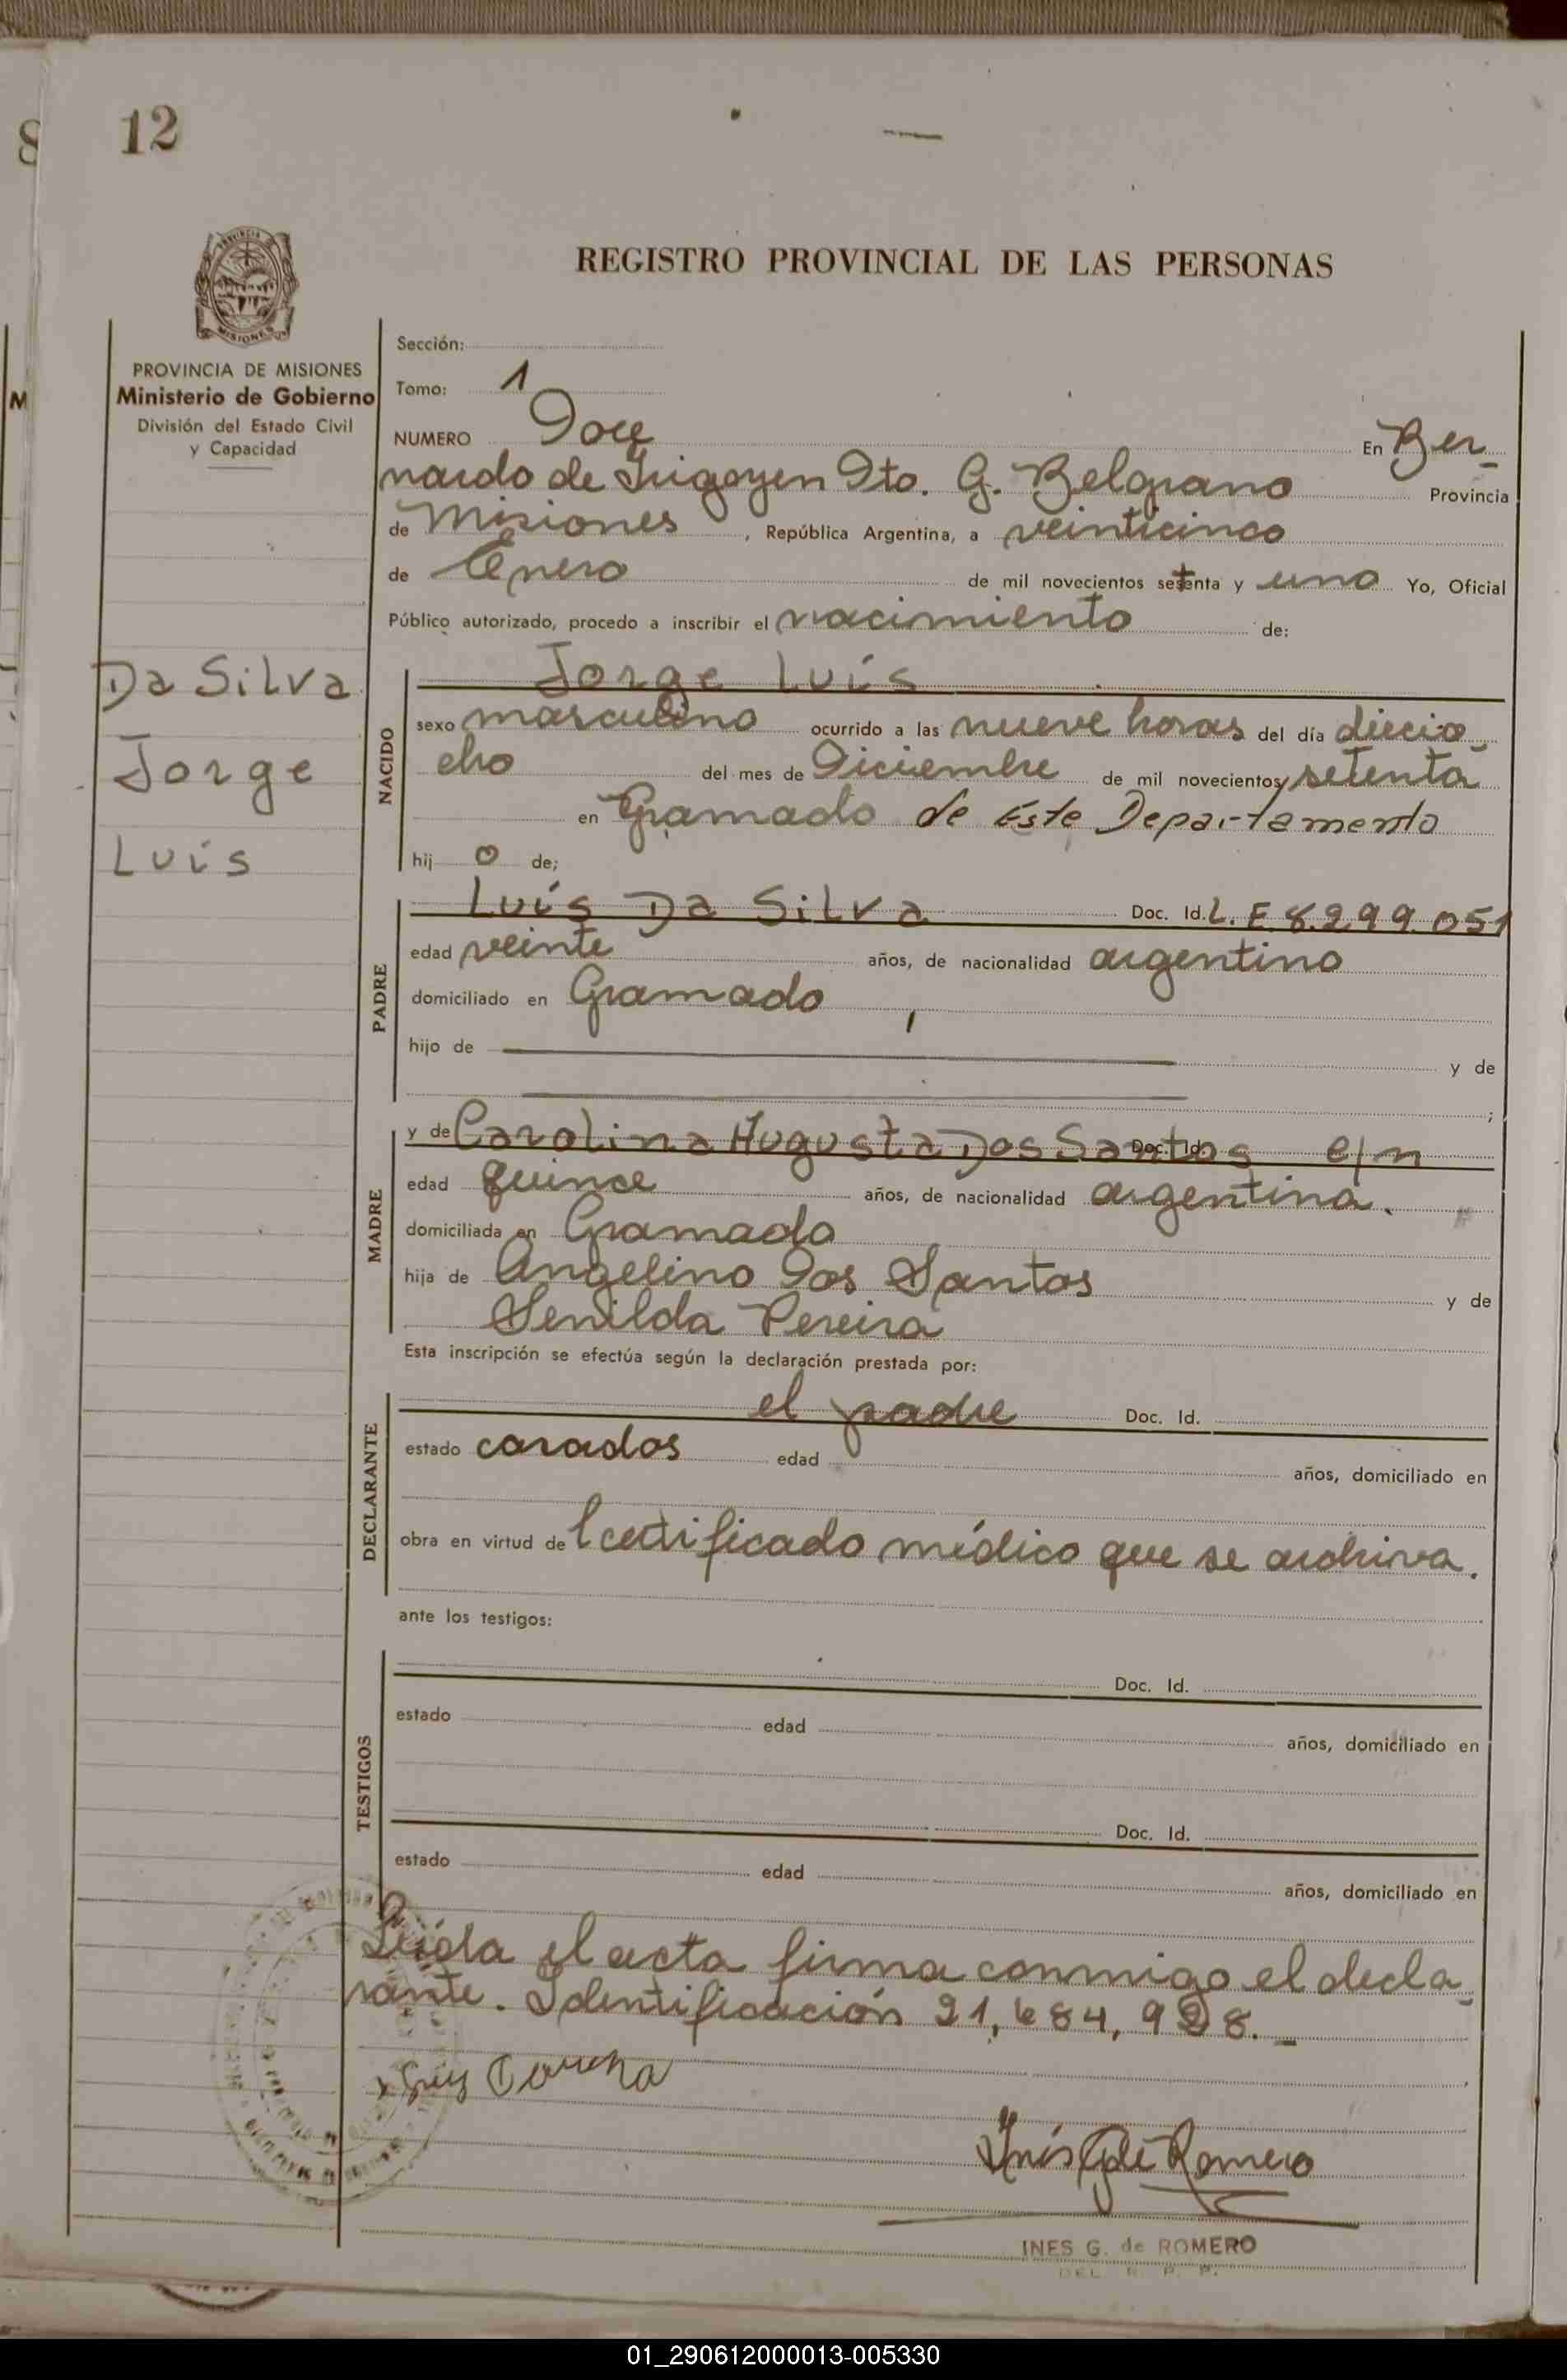 12
REGISTRO PROVINCIAL DE LAS PERSONAS
PROVINCIA DE MISIONES
Ministerio de Gobierno
División del Estado Civil
y Capacidad
Sección:
Tomo: 1
NUMERO Doce En Ber-
nardo de Irigoyen Dto. G. Belgrano Provincia
de Misiones, República Argentina, a veinticinco
de Enero de mil novecientos setenta y uno Yo, Oficial
Público autorizado, procedo a inscribir el nacimiento de:
Da Silva
Jorge
Luis
NACIDO
Jorge Luis
sexo masculino ocurrido a las nueve horas del día diecio-
cho del mes de Diciembre de mil novecientos setenta
en Gramado de Este Departamento
hij o de;
PADRE
Luis Da Silva Doc. Id. L.E 8.299.051
edad veinte años, de nacionalidad argentino
domiciliado en Gramado
hijo de y de
;
MADRE
y de Carolina Augusta Dos Santos Doc. Id. c/n
edad quince años, de nacionalidad argentina.
domiciliada en Gramado
hija de Angelino Dos Santos y de
Senilda Pereira
Esta inscripción se efectúa según la declaración prestada por:
DECLARANTE
el padre Doc. Id.
estado casados edad años, domiciliado en
obra en virtud de l certificado médico que se archiva.
ante los testigos:
TESTIGOS
Doc. Id.
estado edad años, domiciliado en
Doc. Id.
estado edad años, domiciliado en
Leída el acta firma conmigo el decla-
rante. Identificación 21,684,928.-
Inés G de Romero
INES G. de ROMERO
DEL. R. P. P.
01_290612000013-005330